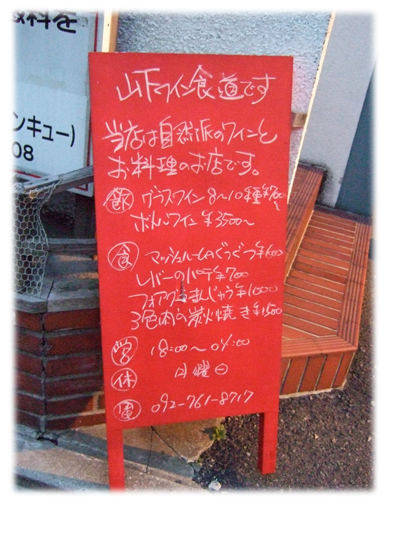 料を
ンキュー)
08
山下ワイン食道です
当店は自然派のワインと
お料理のお店です。
飲 グラスワイン 8〜10種 ¥700〜
ボトルワイン ¥3500〜
食 マッシュルームのぐつぐつ ¥1000
レバーのパテ ¥700
フォアグラまんじゅう ¥1000
3色肉の炭火焼き ¥1500
営 18:00〜04:00
休 月曜日
電 092-761-8717